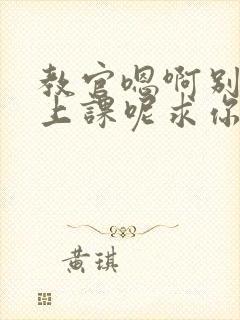 教官嗯啊别
上課呢求你
黄琪